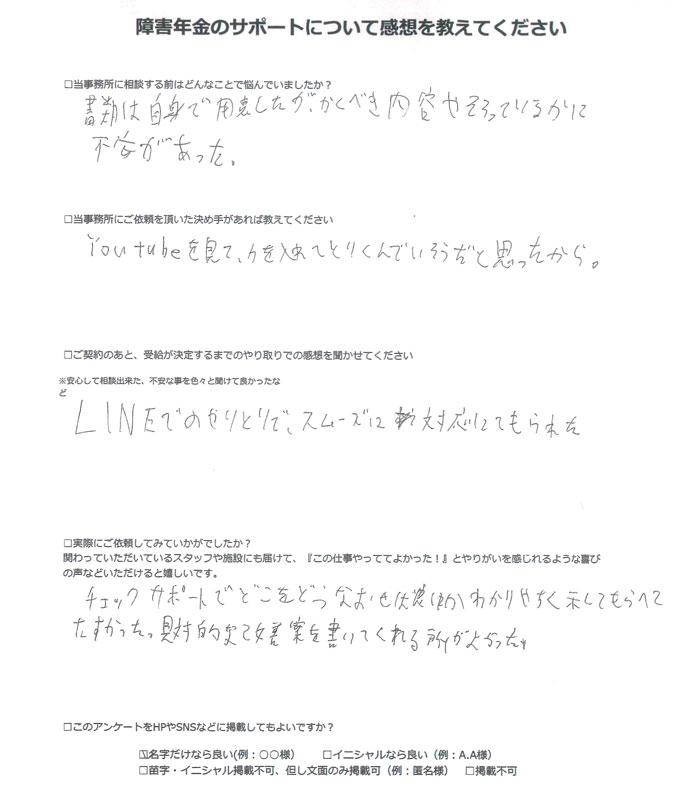 障害年金のサポートについて感想を教えてください
□当事務所に相談する前はどんなことで悩んでいましたか？
書類は自身で用意したが、かくべき内容やそろっているかに
不安があった。
□当事務所にご依頼を頂いた決め手があれば教えてください
Youtubeを見て、力を入れてとりくんでいそうだと思ったから。
□ご契約のあと、受給が決定するまでのやり取りでの感想を聞かせてください
※安心して相談出来た、不安な事を色々と聞けて良かったな
ど
LINEでのやりとりで、スムーズに対応してもられた
□実際にご依頼してみていかがでしたか？
関わっていただいているスタッフや施設にも届けて、『この仕事やっててよかった！』とやりがいを感じれるような喜び
の声などいただけると嬉しいです。
チェックサポートでどこをどうなおせば良いかわかりやすく示してもらえて
たすかった。具体的な改善案を書いてくれる所がよかった。
□このアンケートをHPやSNSなどに掲載してもよいですか？
☑名字だけなら良い(例：○○様） □イニシャルなら良い（例：A.A様）
□苗字・イニシャル掲載不可、但し文面のみ掲載可（例：匿名様） □掲載不可